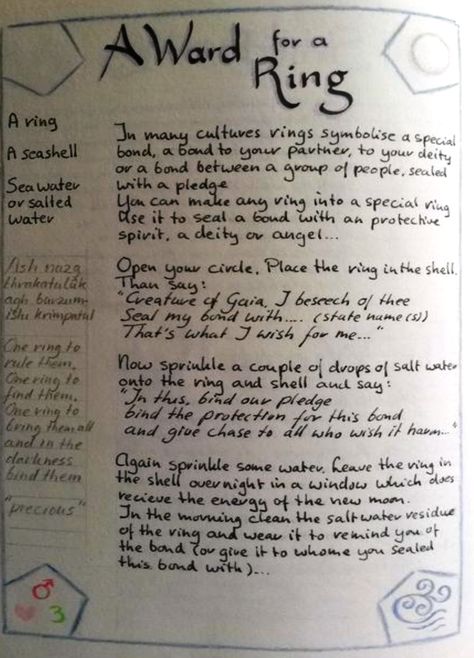 A Ward for a
Ring
A ring
A seashell
Sea water
or salted
water
Ash nazg
thrakatulûk
agh burzum-
ishi krimpatul
One ring to
rule them,
One ring to
find them.
One ring to
bring them all
and in the
darkness
bind them
"precious"
In many cultures rings symbolise a special
bond, a bond to your partner, to your deity
or a bond between a group of people, sealed
with a pledge
You can make any ring into a special ring
Use it to seal a bond with an protective
spirit, a deity or angel...
Open your circle. Place the ring in the shell.
Than say:
"Creature of Gaia, I beseech of thee
Seal my bond with.... (state name(s))
That's what I wish for me..."
Now sprinkle a couple of drops of salt water
onto the ring and shell and say:
"In this, bind our pledge
bind the protection for this bond
and give chase to all who wish it harm..."
Again sprinkle some water. Leave the ring in
the shell overnight in a window which does
recieve the energy of the new moon.
In the morning clean the saltwater residue
of the ring and wear it to remind you of
the bond (or give it to whome you sealed
this bond with)...
♂
3